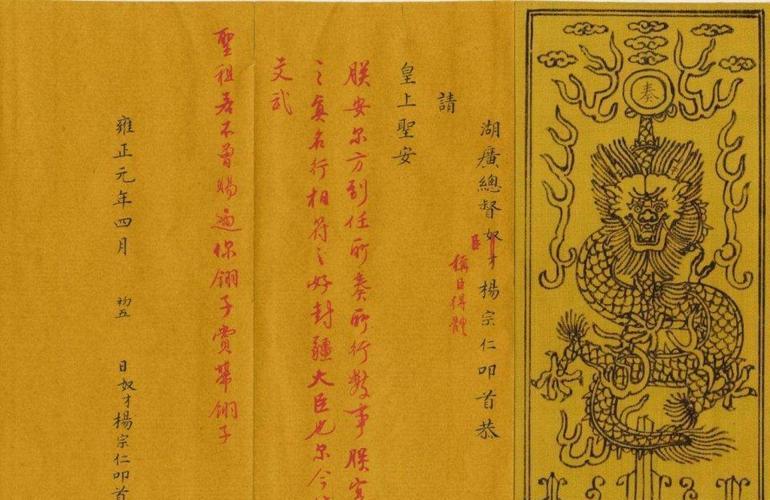 奏
湖廣總督奴才楊宗仁叩首恭
臣
稱臣得體
請
皇上聖安
朕安尔方到任所奏所行數事朕實
之真名行相符之好封疆大臣也尔今
文武
聖祖若不曾賜過你翎子賞帶翎子
雍正元年四月 初五 日奴才楊宗仁叩首